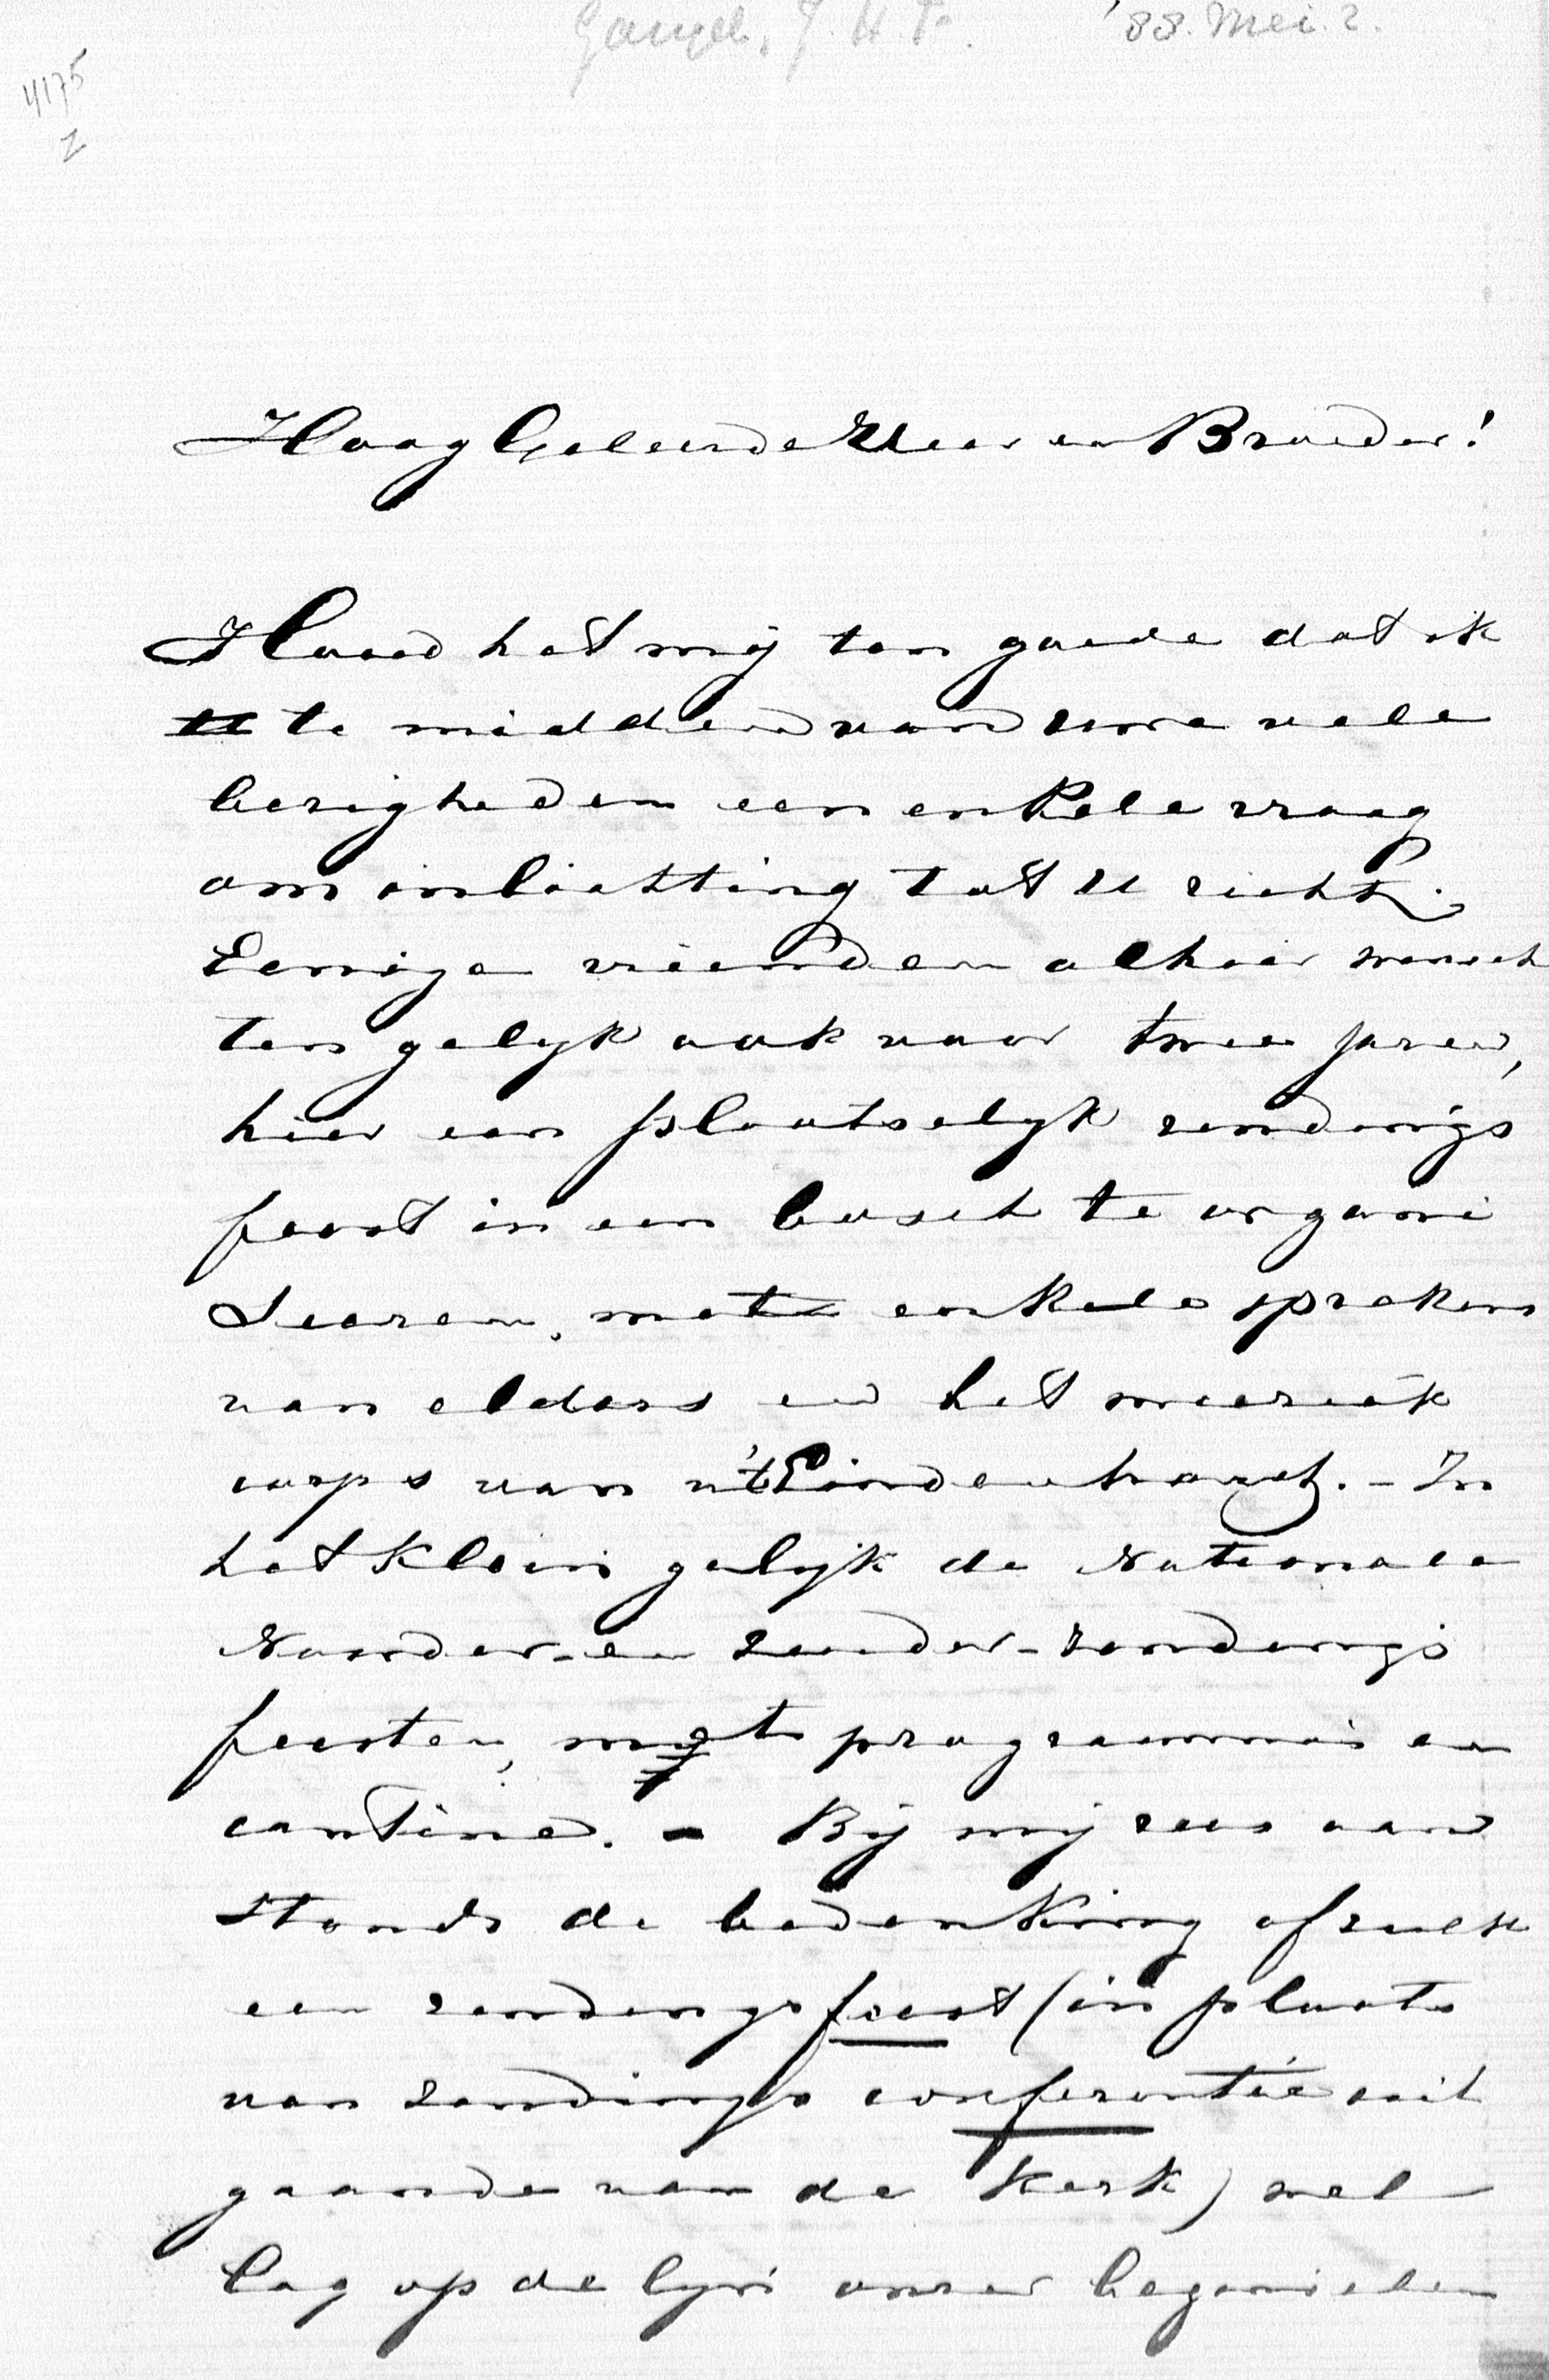 J. H. F. '88. Mei. 2.
4175
Hoog Geleerde Heer en Broeder!
Houd het mij ten goede dat ik
te midden van uwe vele
bezigheden een enkele vraag
om inlichting tot U richt.
Eenige vrienden alhier wensch
ten gelijk ook voor twee jaren,
hier een plaatselijk zendings
feest in een bosch te organi
seeren, met enkele sprekers
van elders en het muziek
corps van n't Eindenhout. - In
het klein gelijk de Nationale
Noorder- en Zuider-zendings
feesten, met programma's en
cantine. - Bij mij rees aan
stonds de bedenking of zulk
een zendingsfeest (in plaats
van zendings conferentie uit
gaande van de Kerk) wel
lag op de lijn onzer beginselen